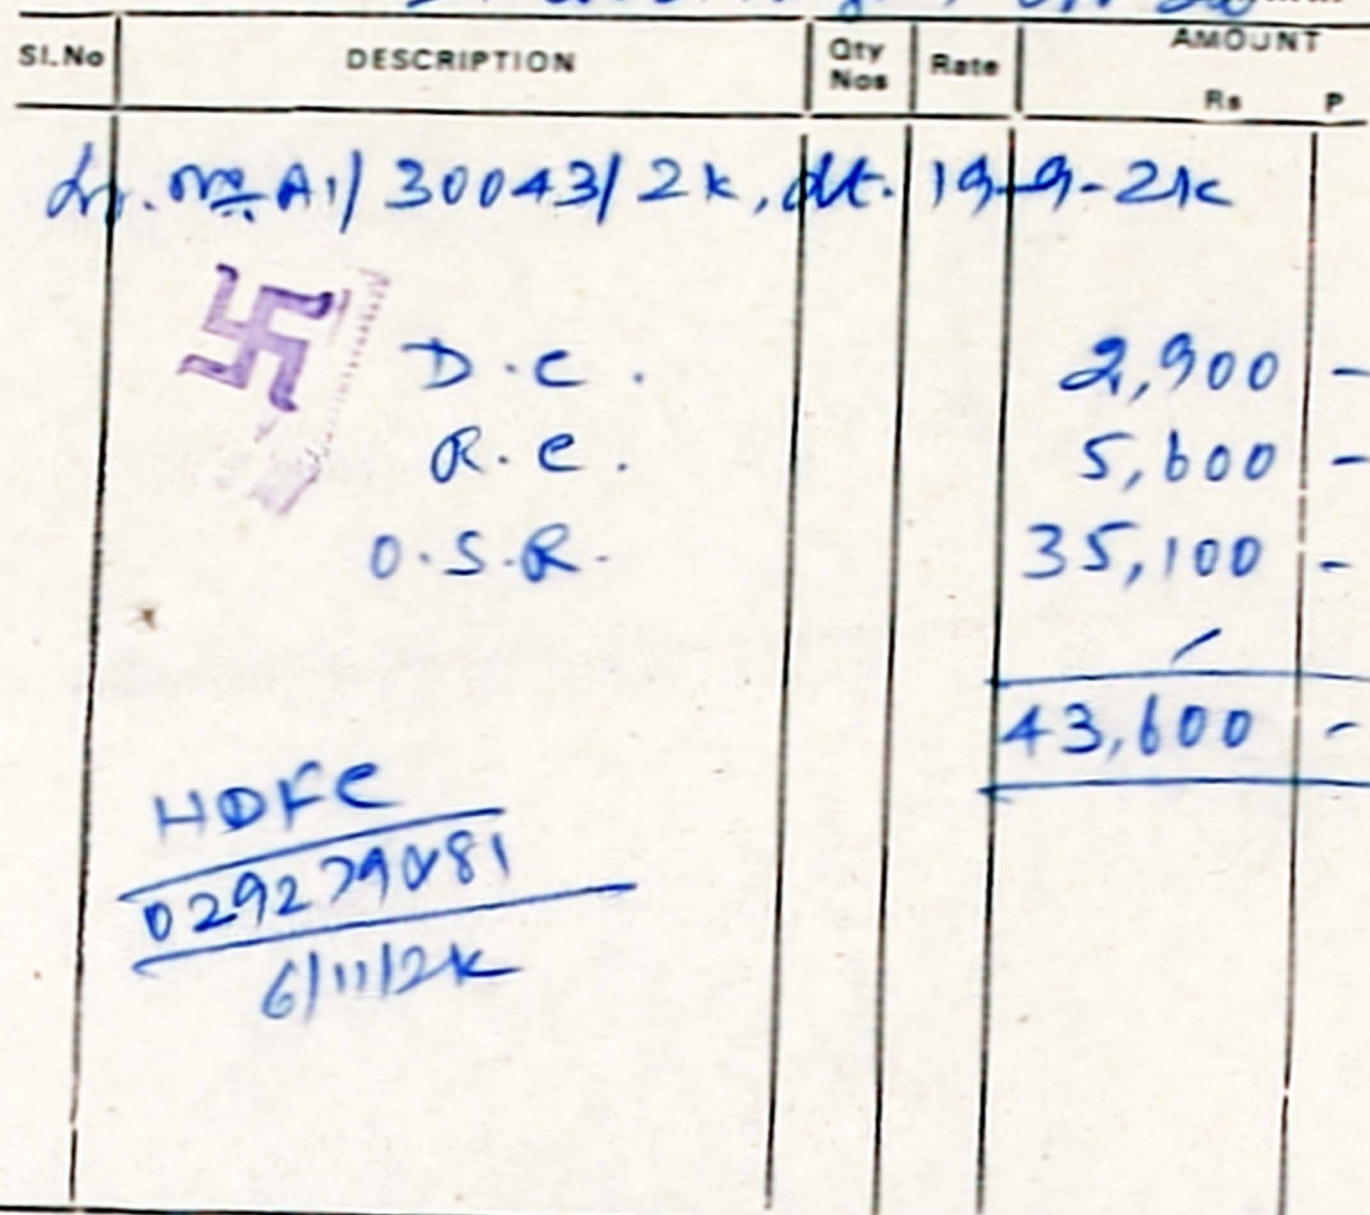 Sl.No DESCRIPTION Qty Nos Rate AMOUNT Rs P
Lr. No. A1/30043/2k, dt. 19-9-2k
D.C. 2,900 -
R.C. 5,600 -
O.S.R. 35,100 -
43,600 -
HDFC
6/11/2k